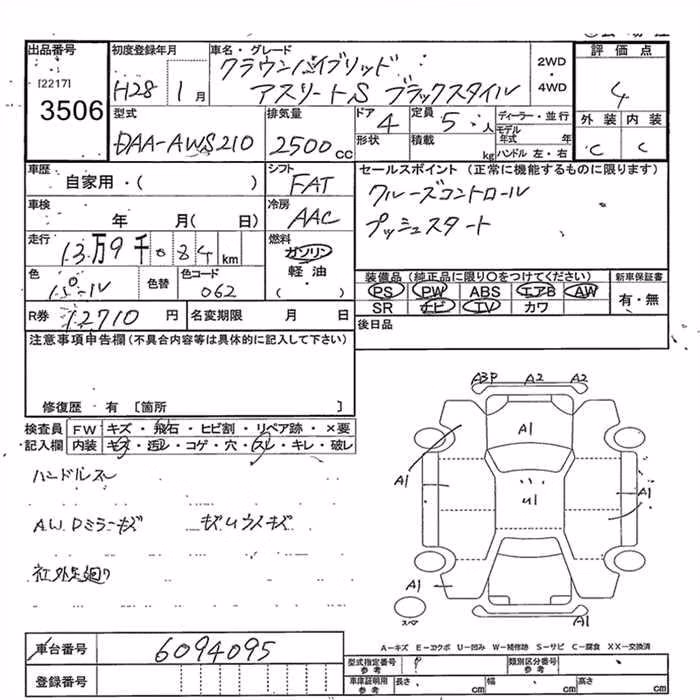 出品番号 初度登録年月 車名・グレード 評価点
[2217] クラウンハイブリッド 2WD
3506 H28 1月 アスリートS ブラックスタイル ・ 4WD 4
型式 排気量 ドア 4 定員 5人 ディーラー・並行 外装 内装
DAA-AWS210 2500cc 形状 積載 kg モデル年式 年 C C
ハンドル 左・右
車歴 自家用・( ) シフト FAT セールスポイント (正常に機能するものに限ります)
クルーズコントロール
車検 年 月( 日) 冷房 AAC プッシュスタート
走行 13万9千084km 燃料 ガソリン
軽油
( )
色 パール 色替 色コード 062 装備品 (純正品に限り○をつけてください) 新車保証書
PS PW ABS エアB AW 有・無
R券 12710円 名変期限 月 日 SR ナビ TV カワ
注意事項申告欄(不具合内容等は具体的に記入して下さい) 後日品
修復歴 有 [箇所 ]
検査員 FW キズ・飛石・ヒビ割・リペア跡・×要
記入欄 内装 キズ・汚レ・コゲ・穴・スレ・キレ・破レ
ハンドルスレ
AW Dミラーキズ
社外足廻り
A3P A2 A2
A1
A1 U1 A1
A1 A1
スペ
A-キズ E-エクボ U-凹み W-補修跡 S-サビ C-腐食 XX-交換済
車台番号 6094095 型式指定番号 参考 類別区分番号 参考
登録番号 車庫証明用 参考 長さ cm 幅 cm 高さ cm